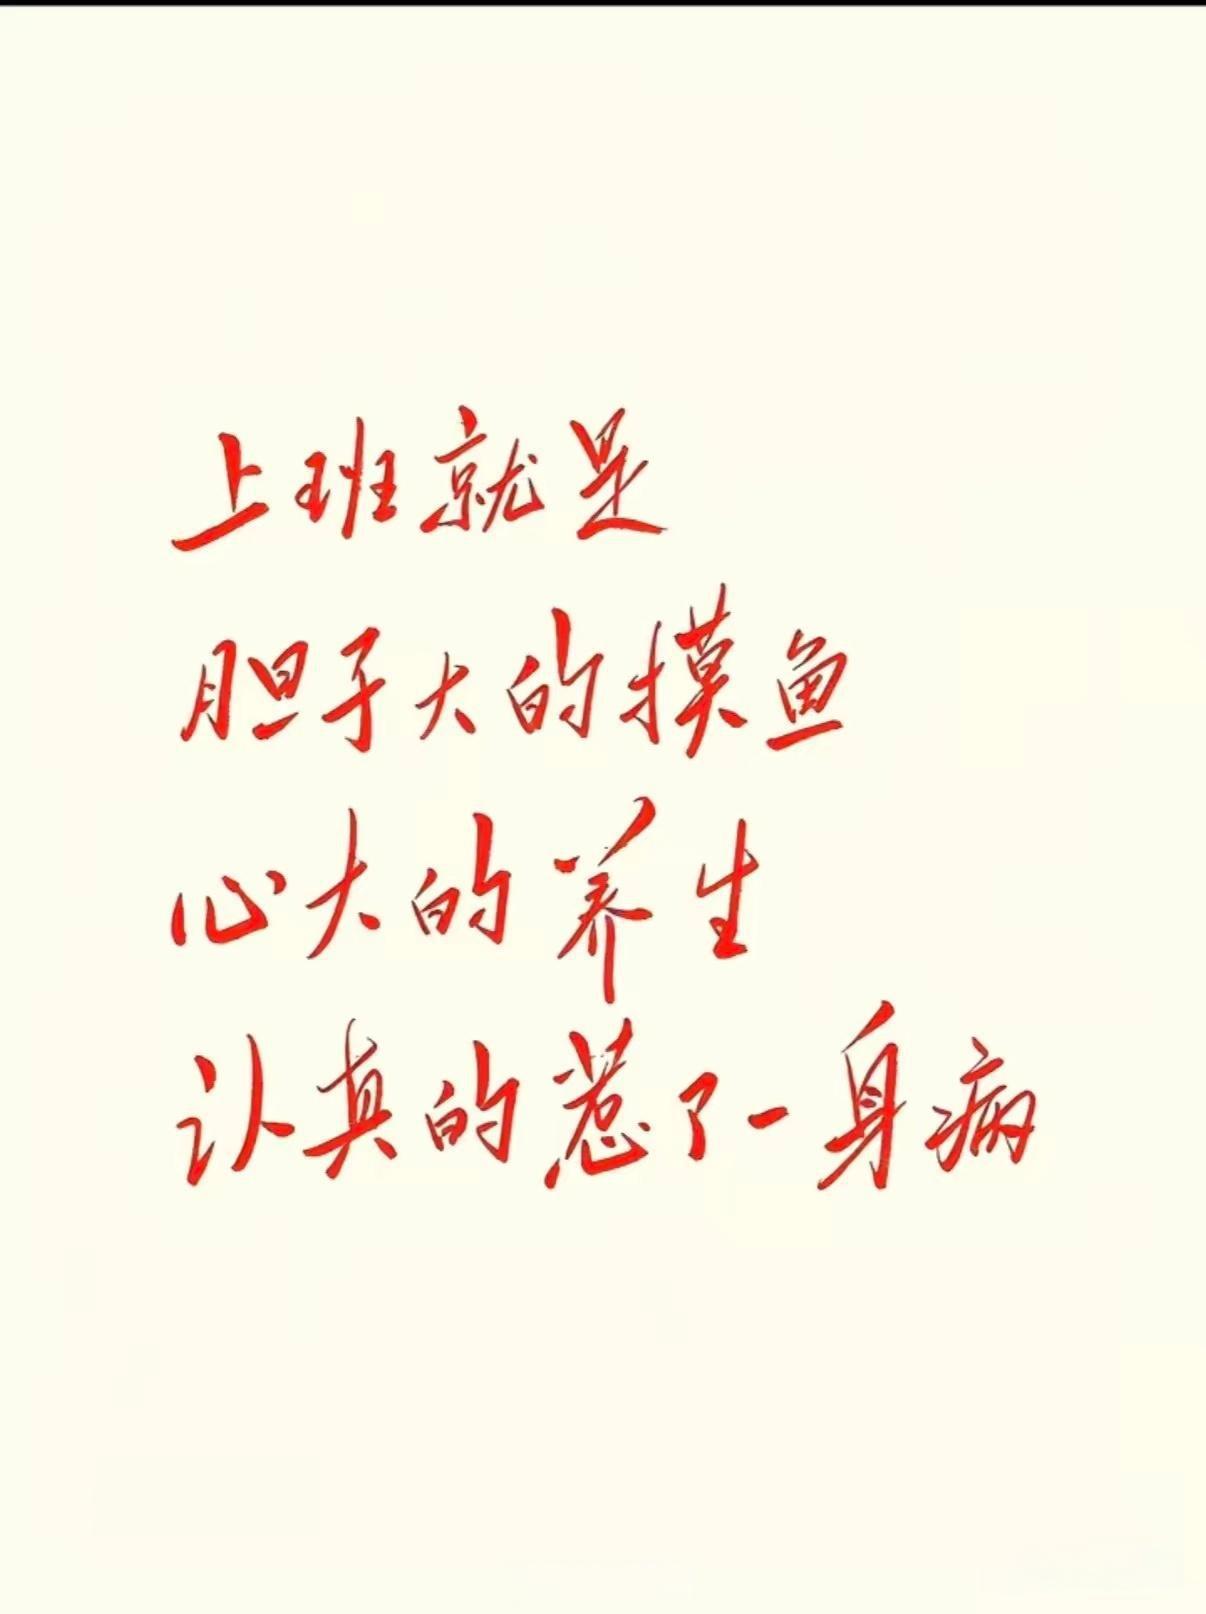 上班就是
胆子大的摸鱼
心大的养生
认真的惹了一身病